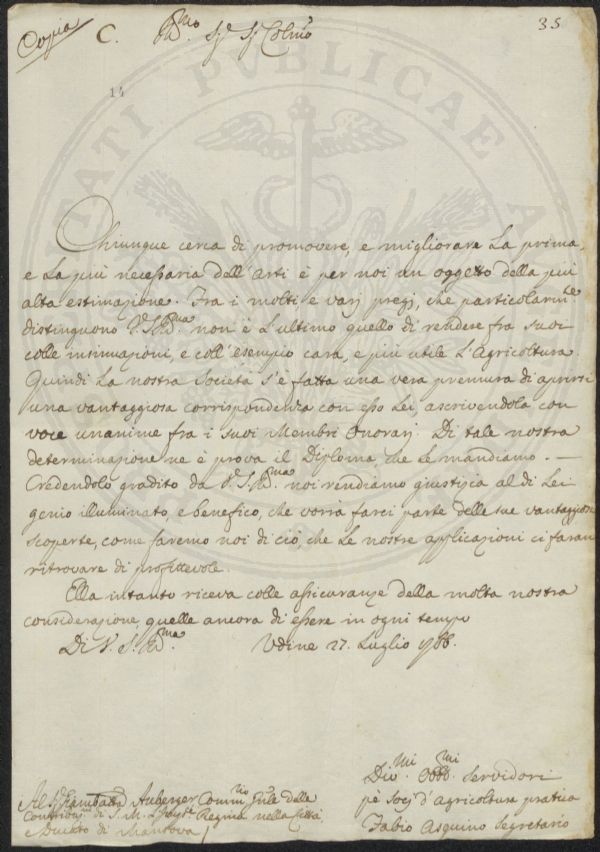 Copia
C.
35
14
Chiunque cerca di promovere, e migliorare la prima,
e la più necessaria dell'Arti è per noi un oggetto della più
alta estimazione. Fra i molti e varj pregj, che particolarm.te
distinguono V.S. non è l'ultimo quello di rendere fra suoi
colle insinuazioni, e coll'esempio cara, e più utile l'Agricoltura.
Quindi la nostra Società s'è fatta una vera premura di aprirsi
una vantaggiosa corrispondenza con esso Lei, ascrivendola con
voce unanime fra i suoi Membri Onorarj. Di tale nostra
determinazione ne è prova il Diploma che le mandiamo. —
Credendolo gradito da V.S. noi rendiamo giustizia al di Lei
genio illuminato, e benefico, che vorrà farci parte delle sue vantaggiose
scoperte, come faremo noi di ciò, che le nostre applicazioni ci faran
ritrovare di profittevole.
Ella intanto riceva colle assicuranze della molta nostra
considerazione, quelle ancora di essere in ogni tempo
Di V. S. Udine 27. Luglio 1788.
Servidori
pè Socj d'Agricoltura pratica
Fabio Asquino Segretario
Auberger delle
di S. M. Regina nella Città,
e Ducato di Mantova
PUBLICAE